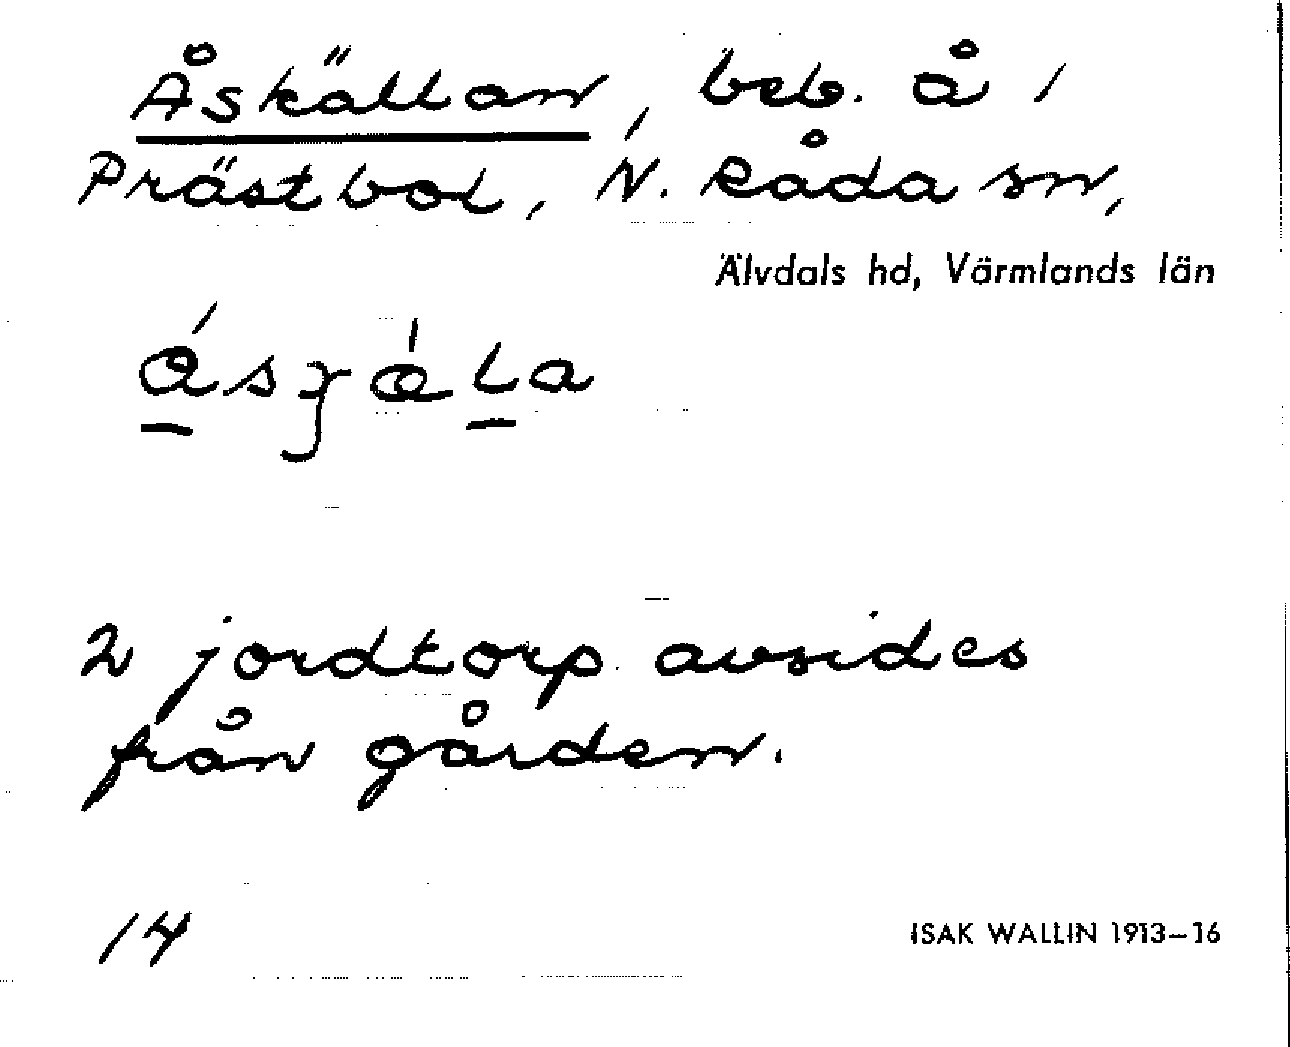 Åskällan, beb. å 1
Prästbol, N. Råda sn,
Älvdals hd, Värmlands län
2 jordtorp avsides
från gården.
14
ISAK WALLIN 1913–16